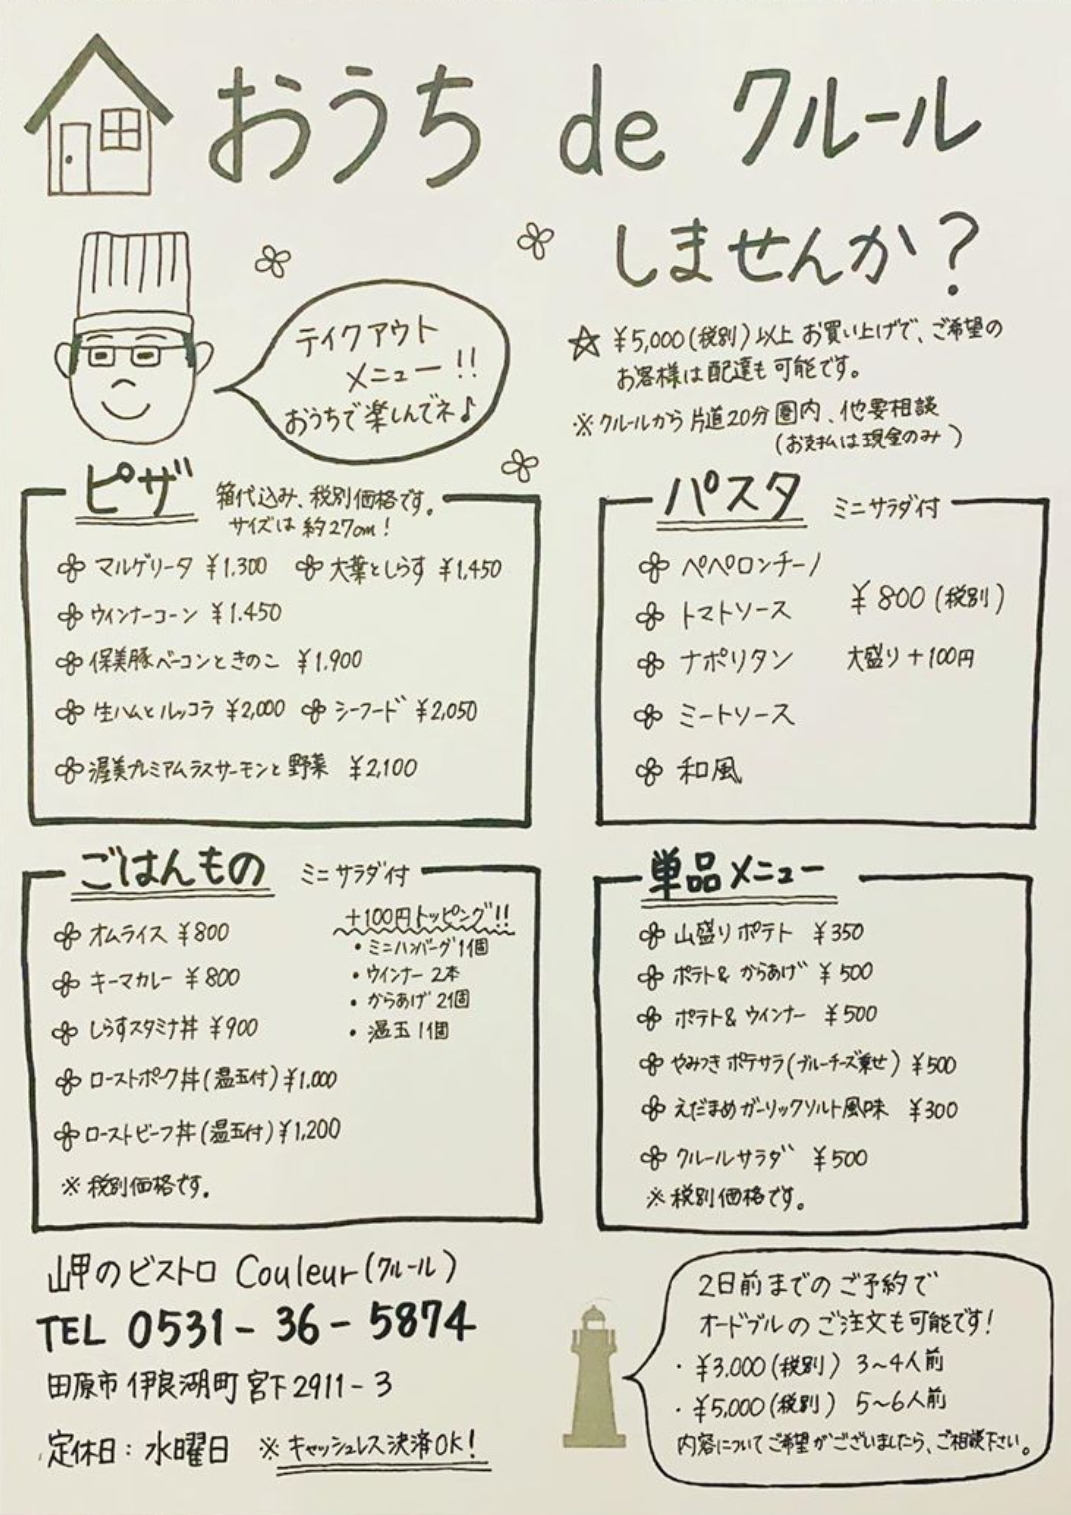 おうち de クルール
しませんか?
テイクアウト
メニュー!!
おうちで楽しんでネ♪
☆ ¥5,000(税別)以上 お買い上げで、ご希望の
お客様は配達も可能です。
※クルールから片道20分圏内、他要相談
(お支払は現金のみ)
ピザ
箱代込み、税別価格です。
サイズは約27cm!
マルゲリータ ¥1.300 大葉としらす ¥1,450
ウインナーコーン ¥1.450
保美豚ベーコンときのこ ¥1.900
生ハムとルッコラ ¥2,000 シーフード ¥2,050
渥美プレミアムラスサーモンと野菜 ¥2,100
パスタ ミニサラダ付
ペペロンチーノ
トマトソース
ナポリタン
ミートソース
和風
¥800(税別)
大盛り+100円
ごはんもの ミニサラダ付
オムライス ¥800
キーマカレー ¥800
しらすスタミナ丼 ¥900
ローストポーク丼(温玉付)¥1,000
ローストビーフ丼(温玉付)¥1,200
※税別価格です。
+100円トッピング!!
・ミニハンバーグ1個
・ウインナー 2本
・からあげ 2個
・温玉 1個
単品メニュー
山盛りポテト ¥350
ポテト& からあげ ¥500
ポテト& ウインナー ¥500
やみつきポテサラ(ブルーチーズ乗せ) ¥500
えだまめガーリックソルト風味 ¥300
クルールサラダ ¥500
※税別価格です。
岬のビストロ Couleur(クルール)
TEL 0531-36-5874
田原市伊良湖町宮下2911-3
定休日:水曜日 ※キャッシュレス決済OK!
2日前までのご予約で
オードブルのご注文も可能です!
・¥3.000(税別) 3~4人前
・¥5,000(税別) 5~6人前
内容についてご希望がございましたら、ご相談下さい。